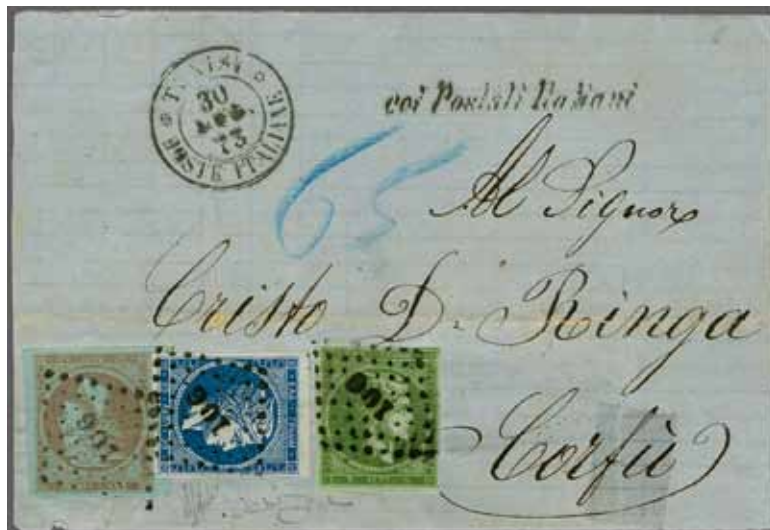 TUNISI
30
73
POSTE ITALIANE
coi Postali Italiani
65
Al Signor
Cristo D. Ringa
Corfù
106
106
106